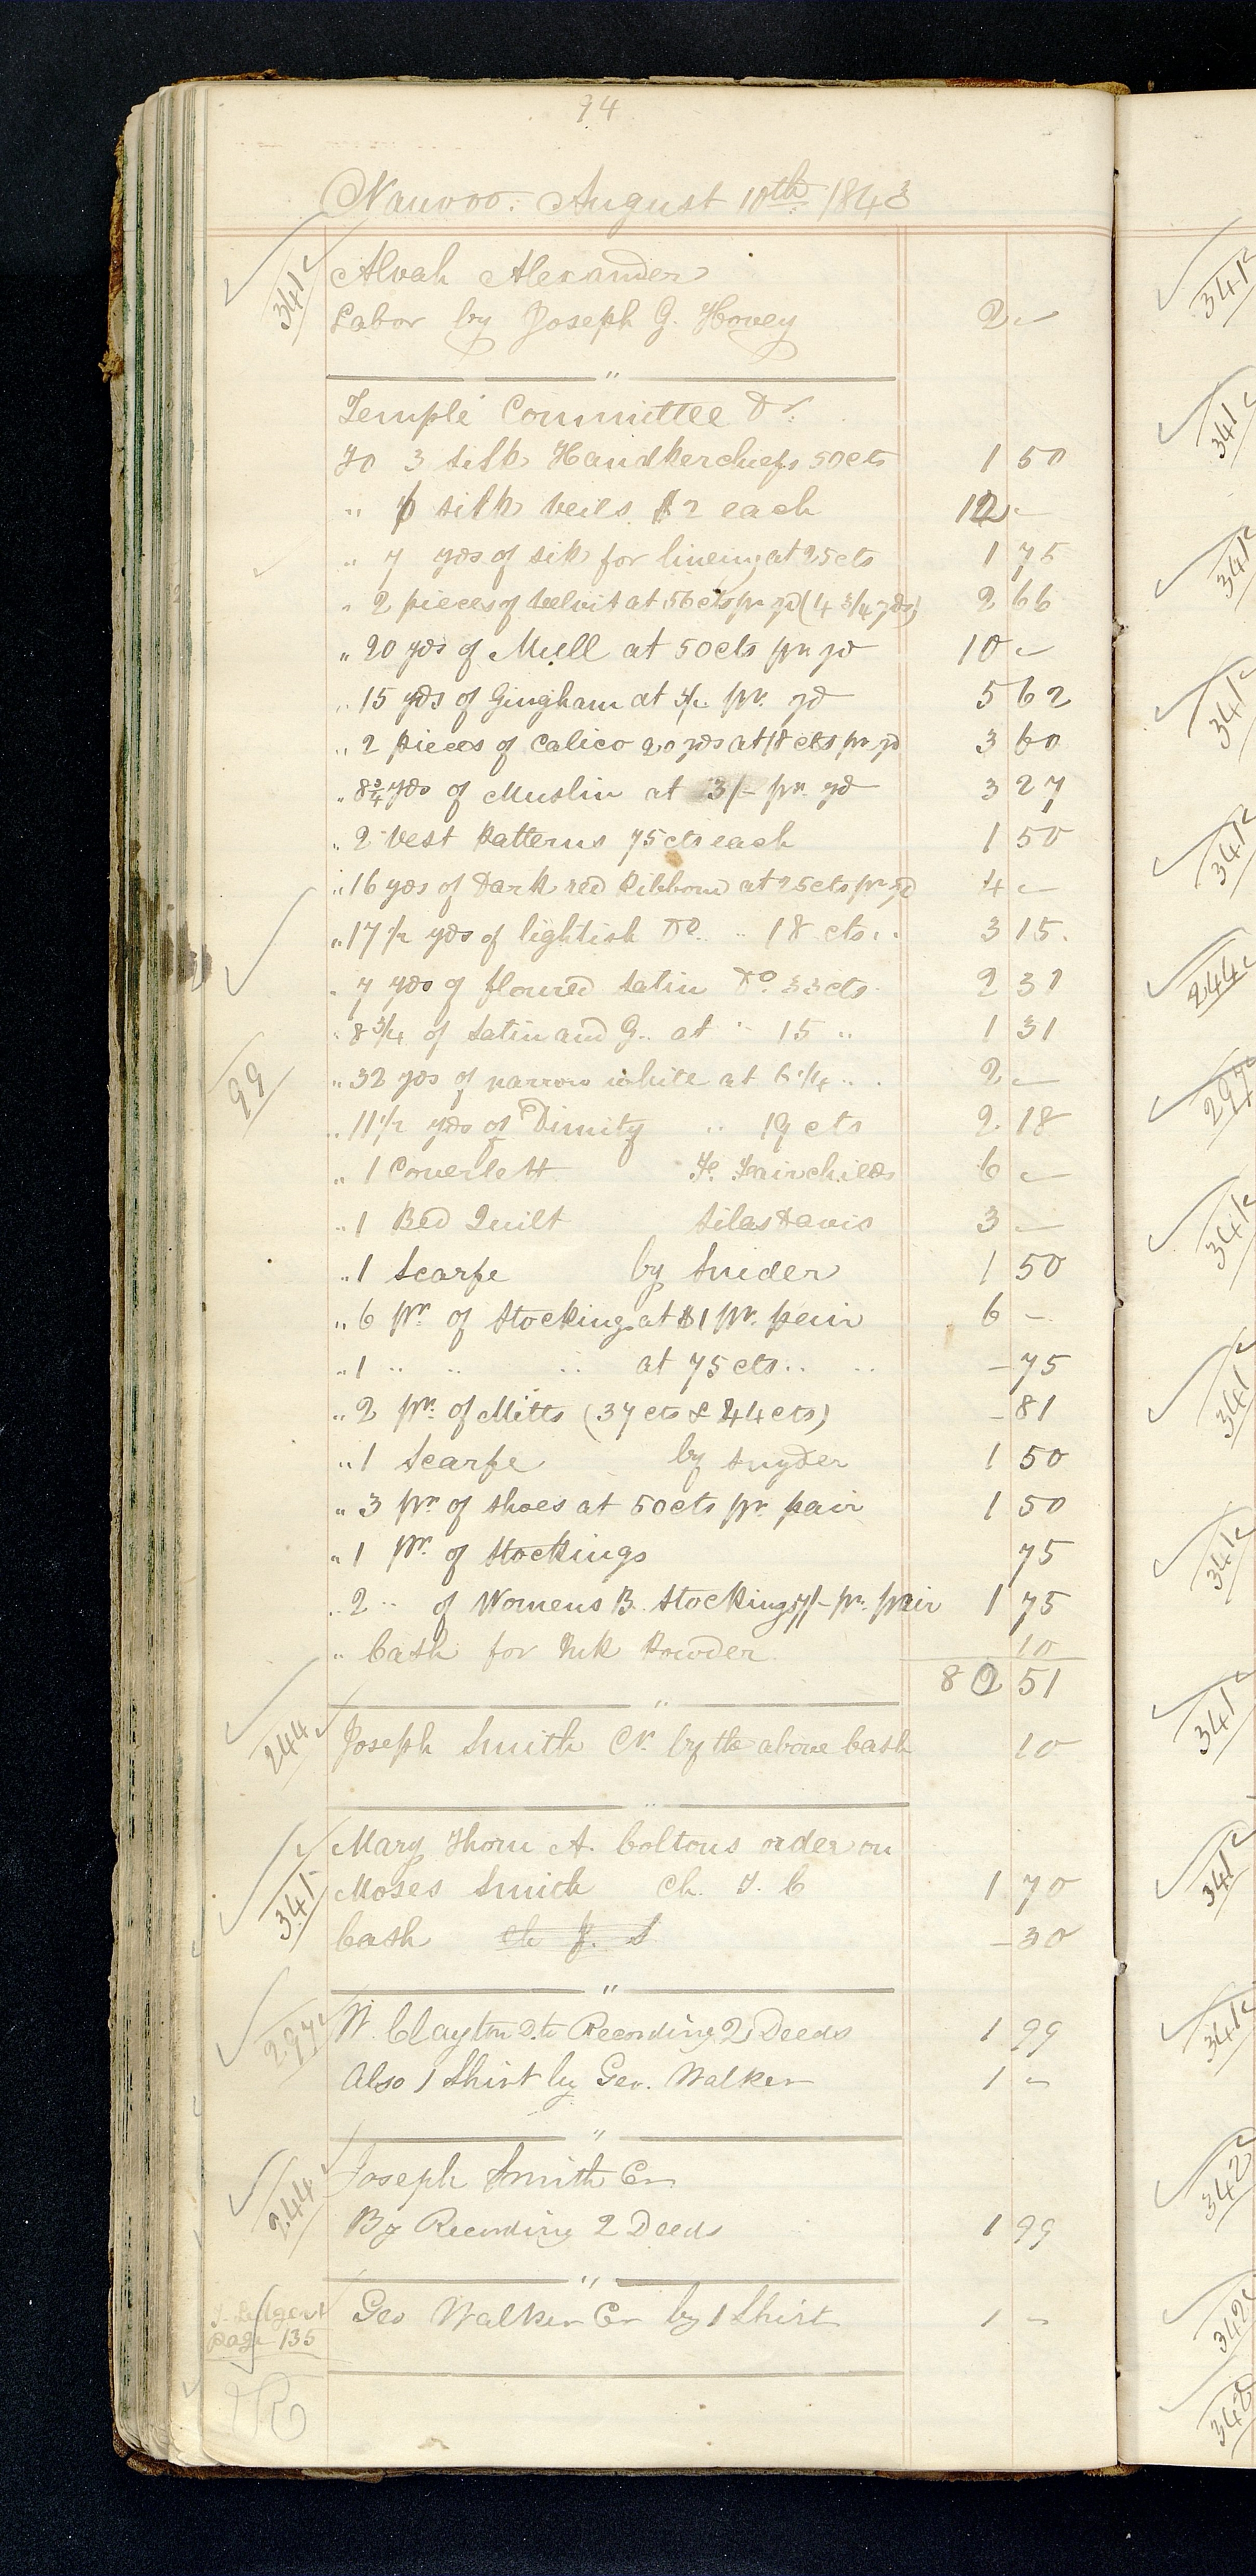 94
Nauvoo. August 10th. 1843
341 Alvah Alexander
Labor by Joseph G. Hovey 2 –
"
Temple Committee Dr.
To 3 silk Handkerchiefs 50 cts 1 50
" 6 silk veils $2 each 12 –
" 7 yds of silk for lineing at 25 cts 1 75
" 2 pieces of velvit at 56 cts pr yd (4 3/4 yds) 2 66
" 20 yds of Mull at 50 cts pr yd 10 –
" 15 yds of Gingham at 3/- pr. yd 5 62
" 2 pieces of Calico 20 yds at 18 cts pr yd 3 60
" 8 3/4 yds of Muslin at 3/- pr. yd 3 27
" 2 Vest Patterns 75 cts each 1 50
" 16 yds of Dark red Ribbond at 25 cts pr yd 4 –
" 17 1/2 yds of lightish Do. " 18 cts " " 3 15.
" 7 yds of floured Satin Do. 33 cts 2 31
" 8 3/4 of Satin and G. at " 15 " 1 31
99 " 32 yds of narrow white at 6 1/4 " " 2 –
" 11 1/2 yds of Dimity " 19 cts 2 18
" 1 Coverlett Fairchilds 6 –
" 1 Bed Quilt Silas Davis 3 –
" 1 Scarfe by Snider 1 50
" 6 pr. of Stocking at $1 pr. pair 6 –
" 1 " " " at 75 cts " " – 75
" 2 pr. of Mitts (37 cts & 44 cts) – 81
" 1 Scarfe by Snyder 1 50
" 3 pr. of Shoes at 50 cts pr. pair 1 50
" 1 Pr. of Stockings 75
" 2 " of Womens B. Stockings 7/- pr. pair 1 75
" Cash for Ink Powder 10
82 51
"
244 Joseph Smith Cr. by the above Cash 10
"
Mary Thorn A. Coltons order on
341 Moses Smith Ch. T. C 1 70
Cash ch J. S – 30
"
227 W. Clayton Dr. to Recording 2 Deeds 1 99
Also 1 Shirt by Geo. Walker 1 –
"
244 Joseph Smith Cr
By Recording 2 Deeds 1 99
"
Ledger
page 135 Geo Walker Cr by 1 Shirt 1 –
341
341
341
341
341
244
297
341
341
341
341
341
341
342
342
342